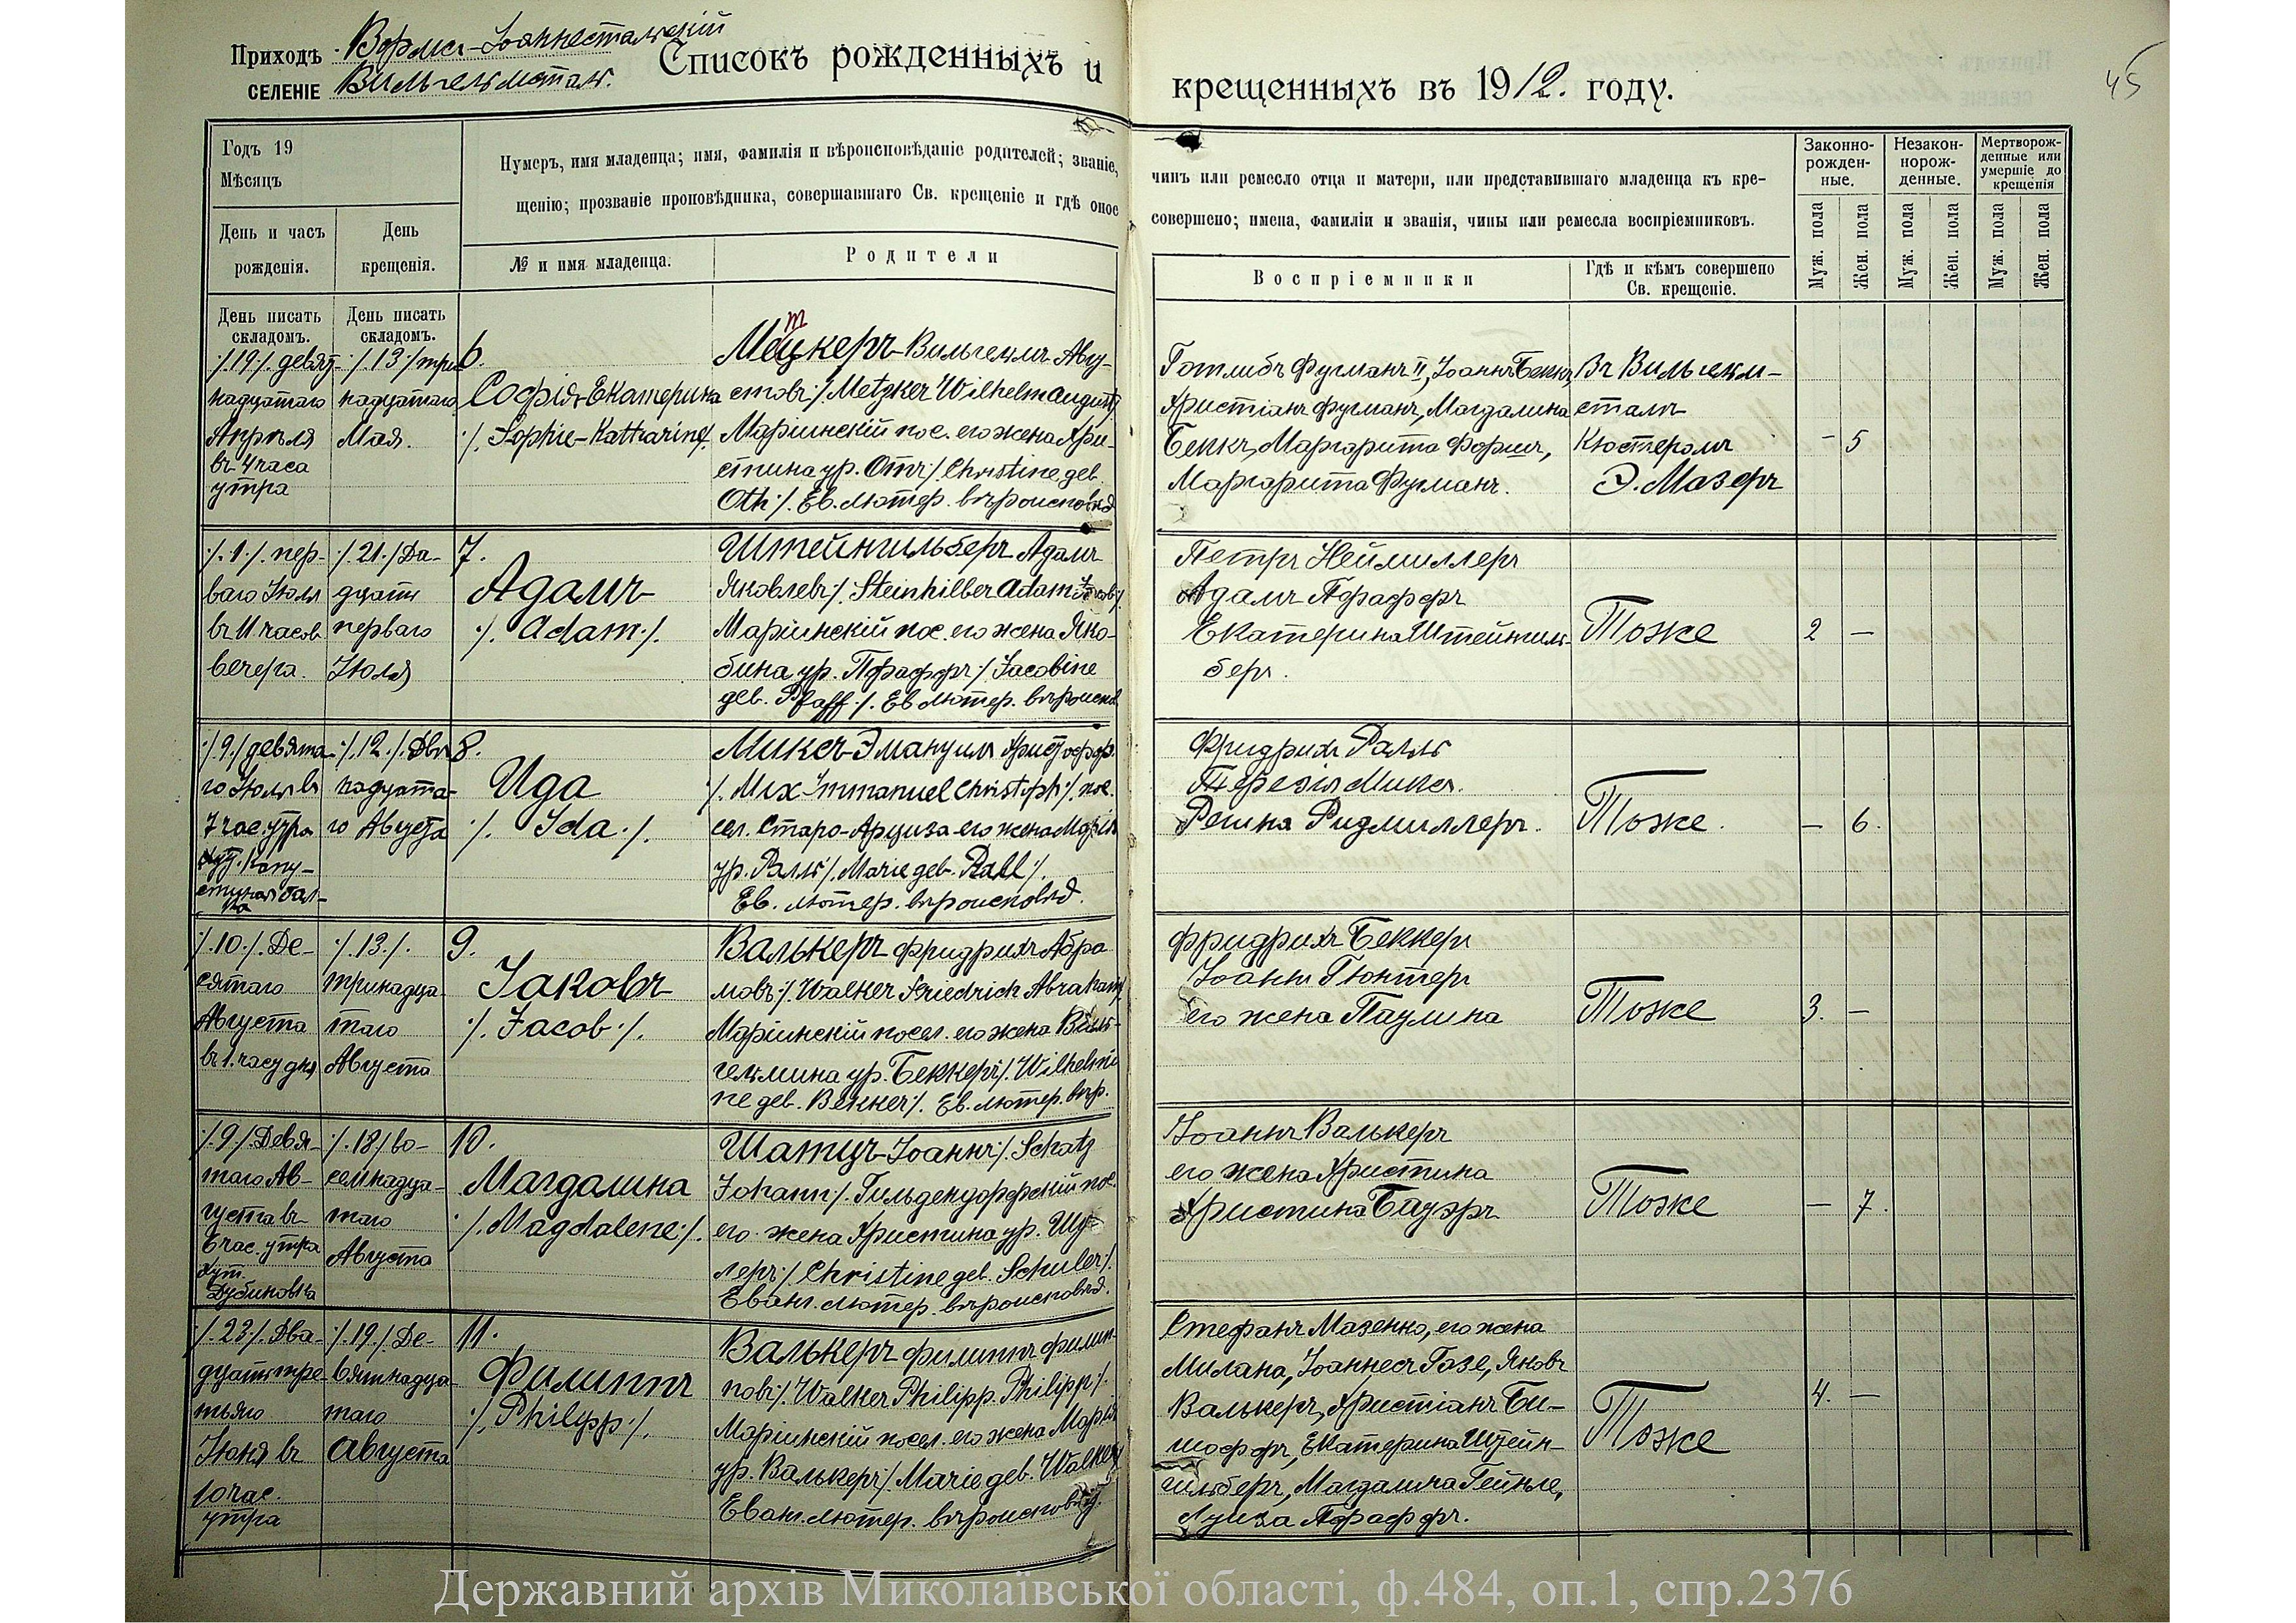 Приходъ Вормс-Іоаннестальскій
СЕЛЕНІЕ Вильгельмсталь.
Списокъ рожденныхъ и крещенныхъ въ 1912. году.
45
Годъ 19
Мѣсяцъ
День и часъ рожденія.
День крещенія.
Нумеръ, имя младенца; имя, фамилія и вѣроисповѣданіе родителей; званіе,
чинъ или ремесло отца и матери, или представившаго младенца къ кре-
щенію; прозваніе проповѣдника, совершавшаго Св. крещеніе и гдѣ оное
совершено; имена, фамиліи и званія, чины или ремесла воспріемниковъ.
№ и имя младенца.
Родители
Воспріемники
Гдѣ и кѣмъ совершено
Св. крещеніе.
Законно-
рожден-
ные.
Незакон-
норож-
денные.
Мертворож-
денные или
умершіе до
крещенія
Муж. пола
Жен. пола
Муж. пола
Жен. пола
Муж. пола
Жен. пола
День писать
складомъ.
День писать
складомъ.
/.19./. девят-
надцатаго
Апрѣля
въ 4 часа
утра
/.13./ три
надцатаго
Мая.
6.
Софія-Екатерина
/. Sophie-Katharine/.
т
Мецкеръ-Вильгельмъ Авгу-
стовъ/. Metzker Wilhelm August/
Маріинскій пос. его жена Хри-
стина ур. Отъ/. Christine geb.
Oth/. Ев. лютер. вѣроисповѣд
Готлибъ Фугманъ II, Іоаннъ Беккъ,
Христіанъ Фугманъ, Магдалина
Беккъ, Маргарита Форшъ,
Маргарита Фугманъ.
Въ Вильгельм-
сталъ
Кюстеромъ
Э. Мазеръ
- 5
/.1./. пер-
ваго Іюля
въ 11 часов
вечера.
/.21./Два-
дцать
перваго
Іюля
7.
Адамъ
/. Adam./.
Штейнгильберъ Адамъ
Яковлевъ/. Steinhilber Adam Jacob/.
Маріинскій пос. его жена Яко-
бина ур. Пфаффъ/. Jacobine
geb. Pfaff/. Ев лютер. вѣроиспов.
Петръ Неймиллеръ
Адамъ Пфаффъ
Екатерина Штейнгиль-
беръ.
Тоже
2 —
/.9./ девята-
го Іюля въ
7 час. утра
хут. Капу-
стяная бал-
ка
/.12./. Двѣ
надцата-
го Августа
8.
Ида
/. Ida./.
Миксъ-Эмануилъ Христофор.
/. Mix Immanuel Christoph/. пос.
сел. Старо-Арциза его жена Марія
ур. Ралль/. Marie geb. Rall/.
Ев. лютер. вѣроисповѣд.
Фридрихъ Ралль
Терезія Миксъ.
Регина Ридмиллеръ.
Тоже.
— 6.
/.10./. Де-
сятаго
Августа
въ 1. часу дня
/.13./.
тринадца-
таго
Августа
9.
Іаковъ
/. Jacob./.
Валькеръ Фридрихъ Абра
мовъ/. Walker Friedrich Abraham/
Маріинскій посел. его жена Виль-
гельмина ур. Беккеръ/. Wilhelmi
ne geb. Bekker/. Ев. лютер. вѣр.
Фридрихъ Беккеръ
Іоаннъ Гюнтеръ
его жена Паулина
Тоже
3. —
/.9./.Девя-
таго Ав-
густа въ
6 час. утра
хут.
Дубиновка
/.18/ во-
семнадца-
таго
Августа
10.
Магдалина
/. Magdalene/.
Шатцъ-Іоаннъ/. Schatz
Johann/. Гильдендорфскій пос.
его жена Христина ур. Шу-
леръ/. Christine geb. Schuler/.
Еванг. лютер. вѣроисповѣд.
Іоаннъ Валькеръ
его жена Христина
Христина Бауэръ
Тоже
— 7.
/.23/. Два-
дцать тре-
тьяго
Іюня въ
10 час.
утра
/.19./Де-
вятнадца-
таго
Августа
11.
Филиппъ
/. Philipp/.
Валькеръ Филиппъ Филип-
повъ/. Walker Philipp Philipp/.
Маріинскій посел. его жена Марія
ур. Валькеръ/. Marie geb. Walker/
Еванг. лютер. вѣроисповѣд.
Стефанъ Мазенко, его жена
Милана, Іоаннесъ Газе, Яковъ
Валькеръ, Христіанъ Би-
шоффъ, Екатерина Штейн-
гильберъ, Магдалина Гейнле,
Луиза Пфаффъ.
Тоже
4. —
Державний архів Миколаївської області, ф.484, оп.1, спр.2376